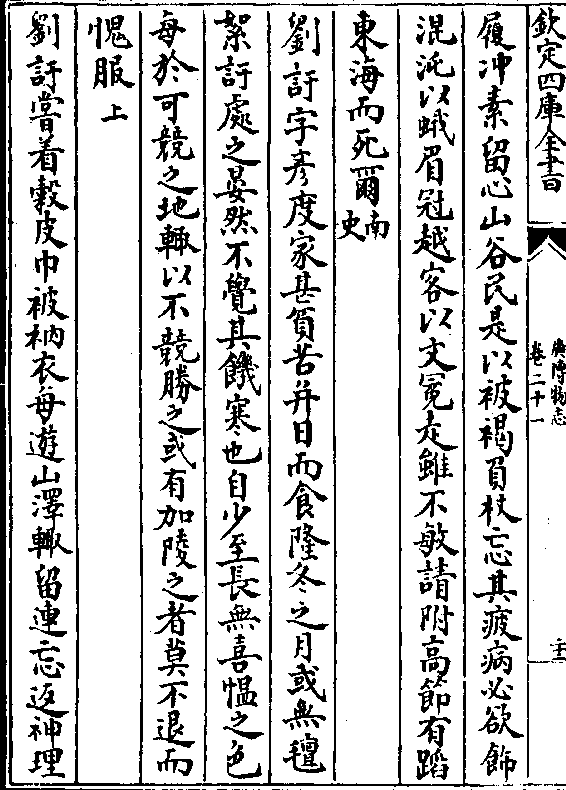 欽定四庫全書
廣博物志
卷二十一
履冲素留心山谷民是以被褐負杖忘其疲病必欲飾
混沌以蛾眉冠越客以文冕走雖不敏請附高節有蹈
東海而死爾南史
劉訏字彦度家甚貧苦并日而食隆冬之月或無氊
絮訏處之晏然不覺其饑寒也自少至長無喜愠之色
每於可競之地輙以不競勝之或有加陵之者莫不退而
愧服上
劉訏嘗着榖皮巾被衲衣每遊山澤輙留連忘返神理